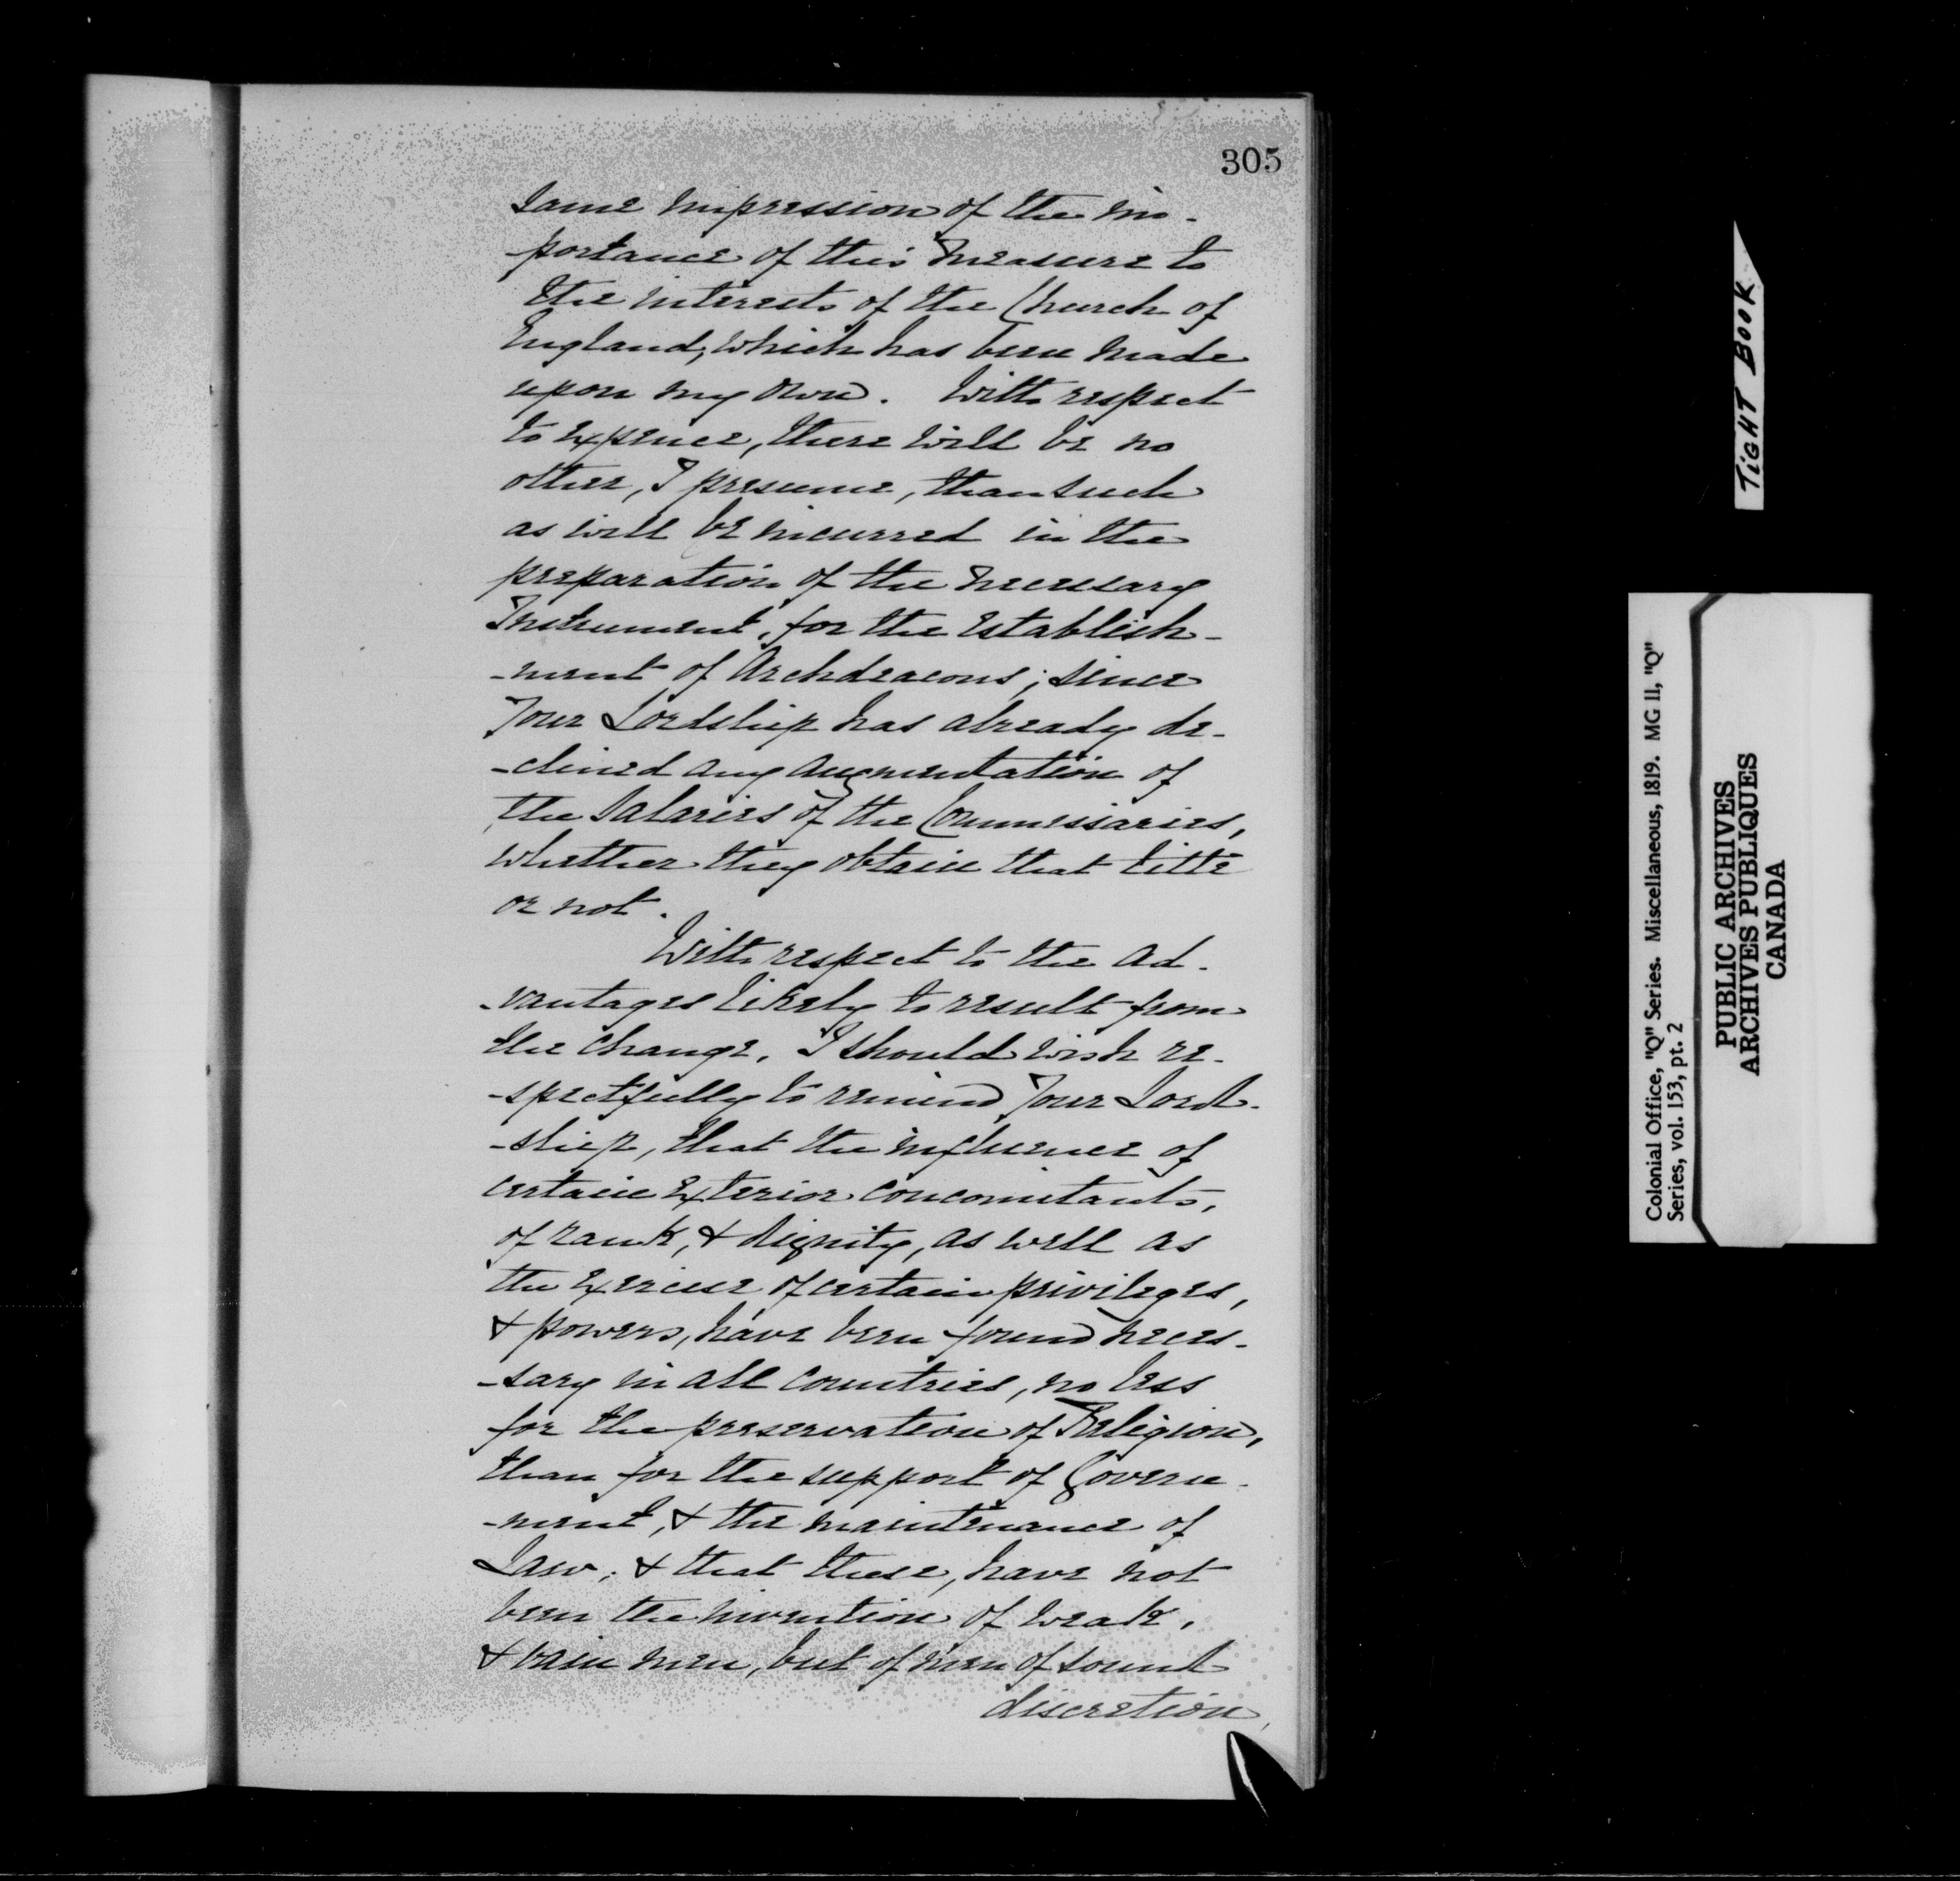 305
same impression of the im-
portance of this measure to
the interests of the Church of
England, which has been made
upon my own. With respect
to expence, there will be no
other, I presume, than such
as will be incurred in the
preparation of the necessary
Instrument, for the establish-
-ment of Archdeacons; since
Your Lordship has already de-
-clined any augmentation of
the Salaries of the Commissaries,
whether they obtain that title
or not.
With respect to the ad-
-vantages likely to result from
the change, I should wish re-
-spectfully to remind Your Lord-
-ship, that the influence of
certain exterior concomitants,
of rank, & dignity, as well as
the exercise of certain privileges,
& powers, have been found neces-
-sary in all countries, no less
for the preservation of Religion,
than for the support of Govern-
-ment, & the maintenance of
Law; & that these, have not
been the invention of weak,
& vain men, but of men of sound
discretion,
TIGHT BOOK
Colonial Office, "Q" Series. Miscellaneous, 1819. MG 11, "Q"
Series, vol. 153, pt. 2
PUBLIC ARCHIVES
ARCHIVES PUBLIQUES
CANADA